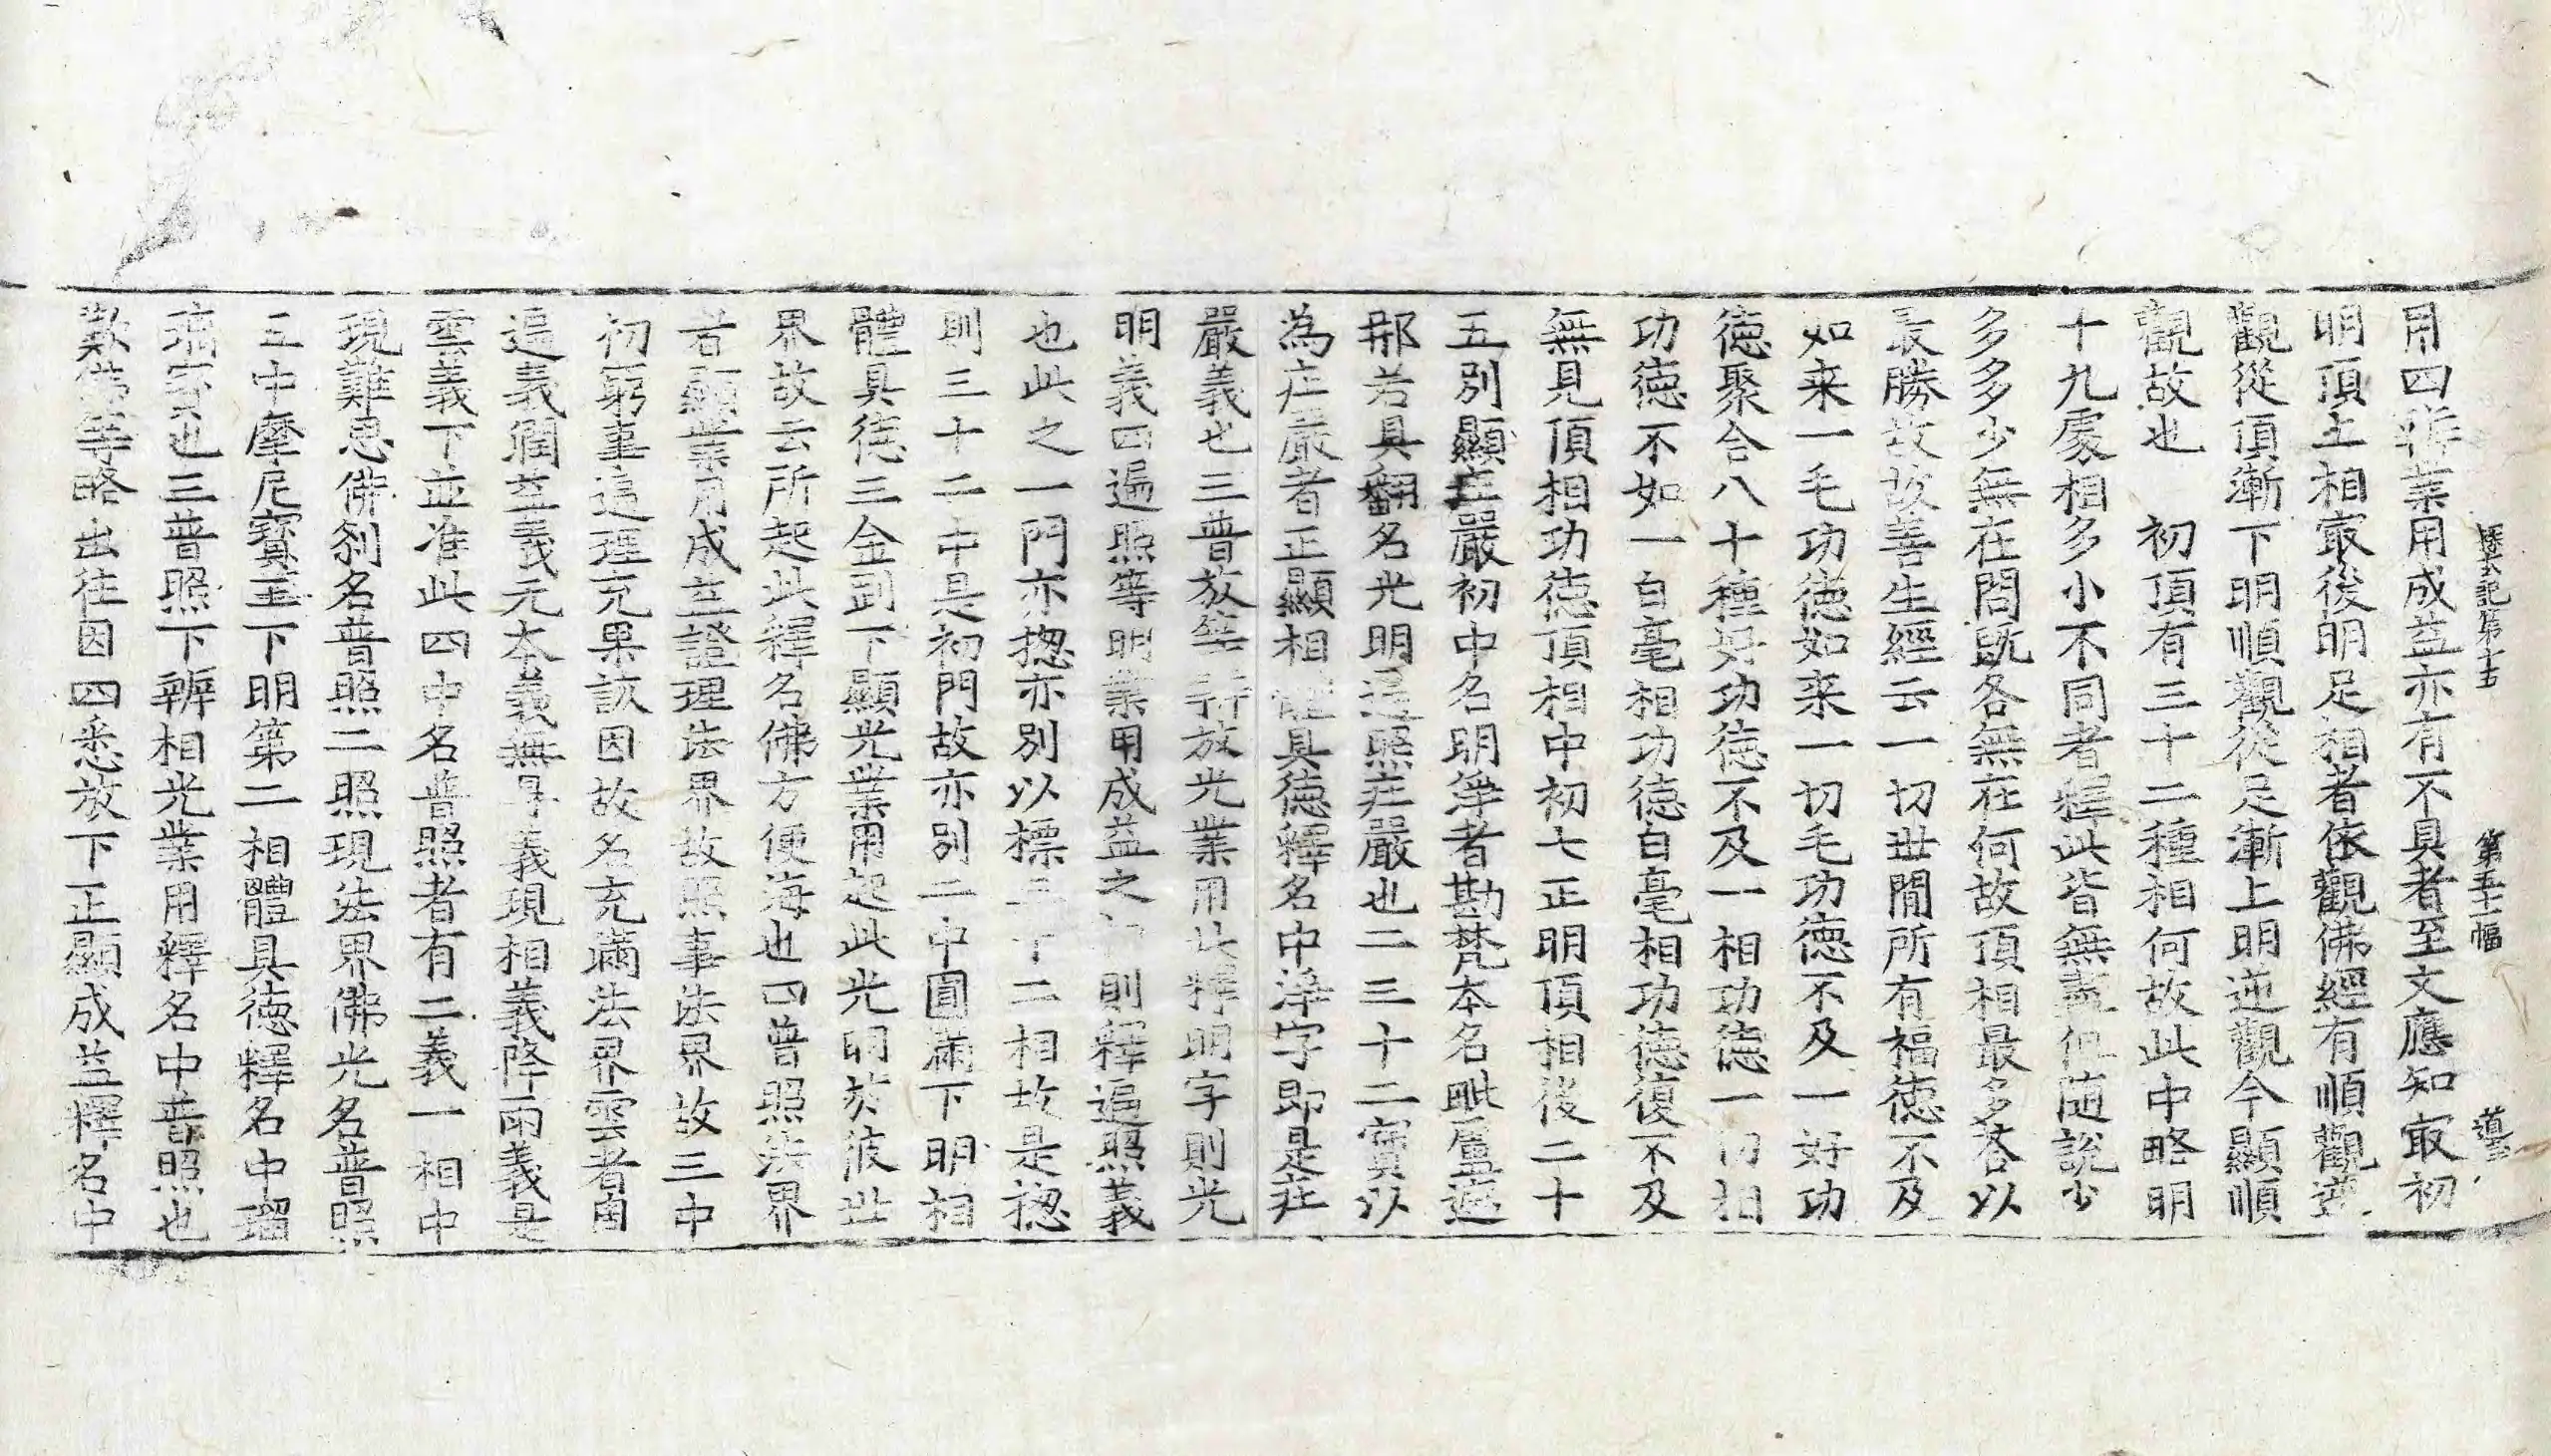 用四辨業用成益亦有不具者至文應知㝡初
明頂上相㝡後明足相者依觀佛經有順觀逆
觀從頂漸下明順觀從足漸上明逆觀今顯順
觀故也　初頂有三十二種相何故此中略明
十九處相多小不同者釋此皆無盡但随說少
多多少無在問旣各無在何故頂相最多答以
㝡勝故故善生經云一切世間所有福徳不及
如来一毛功徳如来一切毛功徳不及一好功
徳聚合八十種好功徳不及一相功徳一切相
功徳不如一白毫相功徳白毫相功徳復不及
無見頂相功徳頂相中初七正明頂相後二十
五別顯庄嚴初中名明淨者勘梵本名毗盧遮
那若具翻名光明遍照庄嚴也二三十二寶以
為庄嚴者正顯相體具徳釋名中淨字即是莊
嚴義也三普放等辨放光業用此釋明字則光
明義四遍照等明業用成益之門則釋遍照義
也此之一門亦揔亦別以標三十二相故是揔
則三十二中是初門故亦別二中圓滿下明相
體具徳三金剛下顯光業用起此光明於彼世
界故云所起此釋名佛方便海也四普照法界
者顯業用成立證理法界故照事法界故三中
初窮事遍理充果該因故名充滿法界雲者有
遍義潤益義元本義無导義現相義降雨義是
雲義下並准此四中名普照者有二義一相中
現難思佛刹名普照二照現法界佛光名普照
三中摩尼寶王下明第二相體具徳釋名中瑠
璃寶也三普照下辨相光業用釋名中普照也
歎佛等略出往因四悉放下正顯成益釋名中